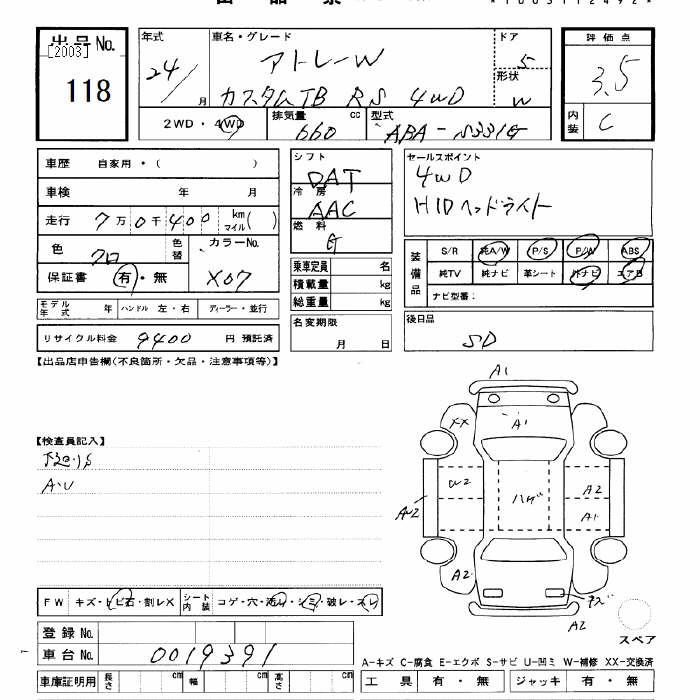 出品票
*1003112492*
出品No.
[2003]
118
年式
24/
月
車名・グレード
アトレーW
カスタムTB RS 4WD
ドア
5
形状
W
評価点
3.5
内装
C
2WD・4WD
排気量
660
cc
型式
ABA-S331G
車歴 自家用・( )
車検 年 月
走行 7万0千400 km マイル( )
色
クロ
色替
カラーNo.
X07
保証書 有・無
モデル年式 年 ハンドル 左・右 ディーラー・並行
リサイクル料金 9400 円 預託済
シフト
DAT
冷房
AAC
燃料
G
乗車定員 名
積載量 kg
総重量 kg
名変期限
月 日
セールスポイント
4WD
HIDヘッドライト
装備品
S/R 純A/W P/S P/W ABS
純TV 純ナビ 革シート 外ナビ エアB
ナビ型番:
後日品
SD
【出品店申告欄(不良箇所・欠品・注意事項等)】
【検査員記入】
下廻りS
A・U
A1
XX
A1
W2
ハゲ
A2
A2
A1
A2
A2
FW キズ・トビ石・割レX
シート内装 コゲ・穴・汚レ・シミ・破レ・スレ
登録No.
車台No. 0019391
車庫証明用 長さ cm 幅 cm 高さ cm
スペア
A-キズ C-腐食 E-エクボ S-サビ U-凹ミ W-補修 XX-交換済
工具 有・無 ジャッキ 有・無